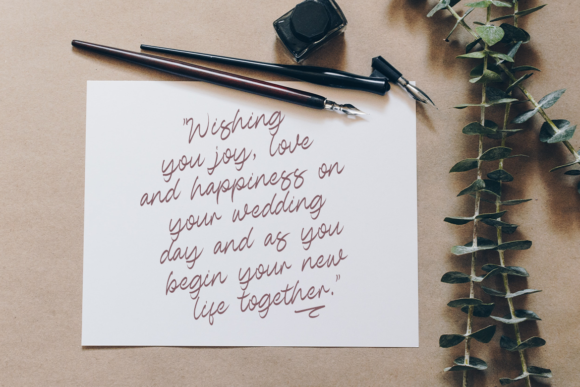 "Wishing
you joy, love
and happiness on
your wedding
day and as you
begin your new
life together."